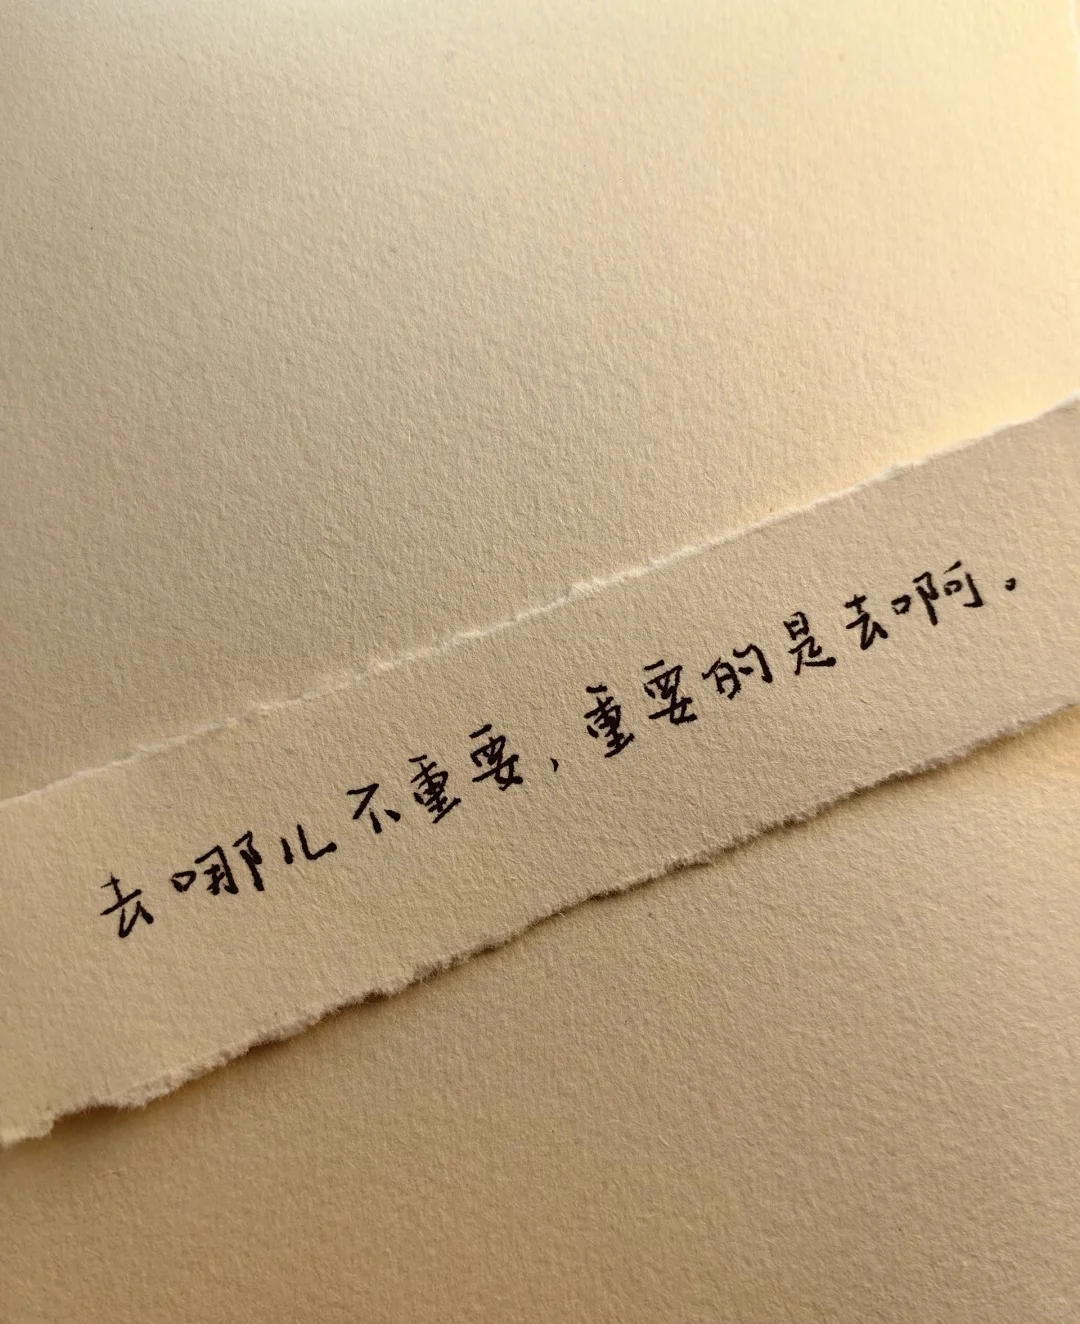 去哪儿不重要，重要的是去啊.